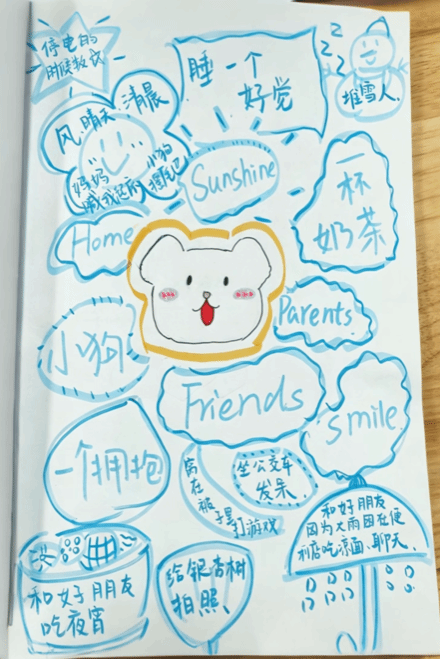 停电的
时候教室
睡一个
好觉
zzz
堆雪人
风、晴天、清晨
妈妈
喊我起床
小狗
Sunshine
一杯
奶茶
Home
Parents
小狗
Friends
Smile
一个拥抱
窝在被子里打游戏
坐公交车
发呆
和好朋友
因为大雨困在便
利店吃凉面、聊天
和好朋友
吃夜宵
给银杏树
拍照